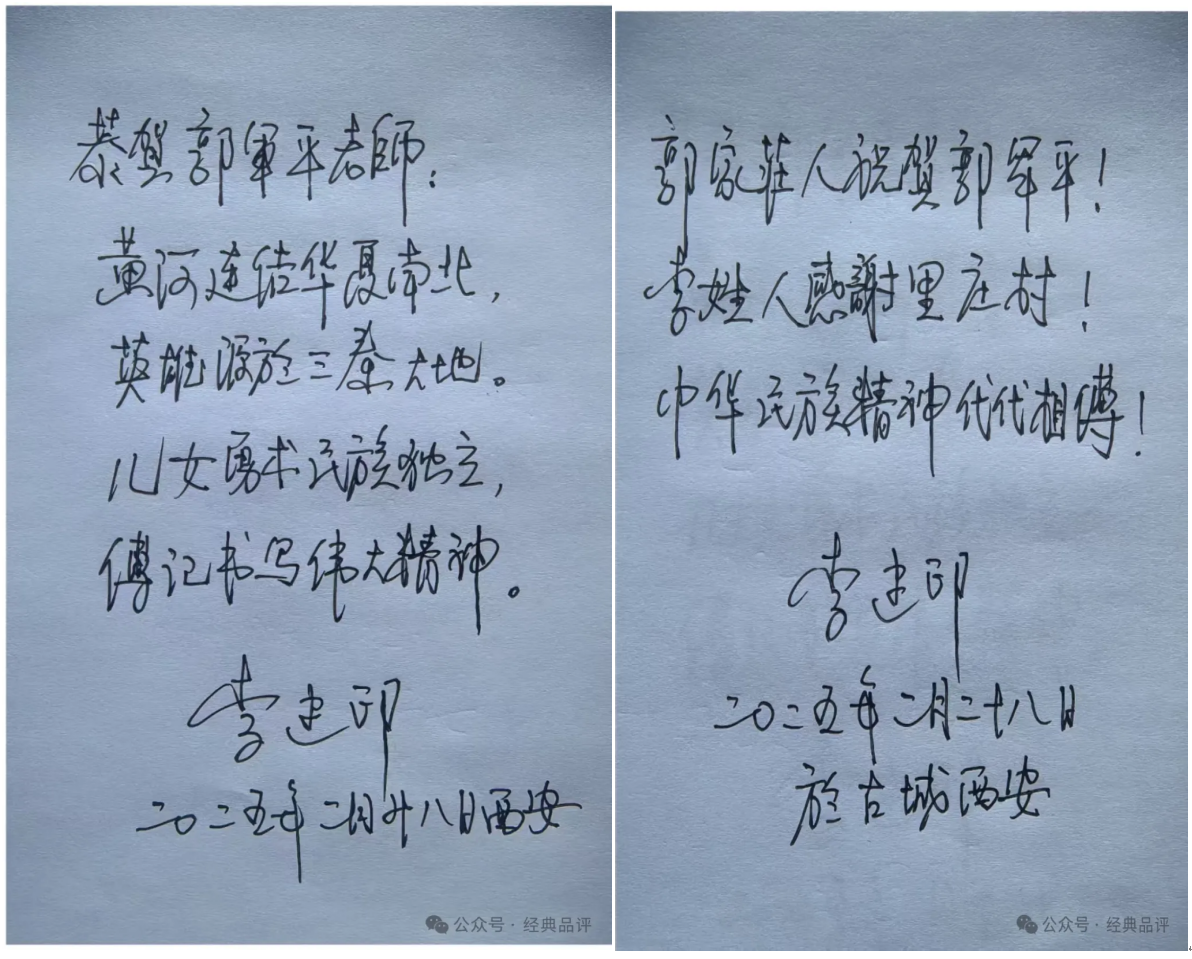 恭贺郭軍平老師：
黄河连结华夏南北，
英雄源於三秦大地。
儿女勇求民族独立，
傳记书写伟大精神。
李建印
二〇二五年二月廿八日西安
公众号·经典品评
郭家莊人祝贺郭军平！
李姓人感謝里庄村！
中华民族精神代代相傳！
李建印
二〇二五年二月二十八日
於古城西安
公众号·经典品评